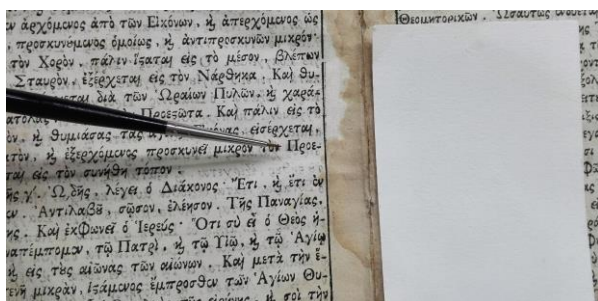 ἀρχόμενος ἀπὸ τῶν Εἰκόνων, ϗ ἀπερχόμενος ὡς
προσκυνόμενος ὁμοίως, ϗ ἀντιπροσκυνῶν μικρὸν
τὸν Χορὸν, πάλιν ἵσαται εἰς τὸ μέσον, βλέπων
Σταυρὸν, ἐξέρχεται εἰς τὸν Νάρθηκα. Καὶ θυ-
διὰ τῶν Ὡραίων Πυλῶν, ϗ χαρά-
Προεςῶτα. Καὶ πάλιν εἰς τὸ
ϗ θυμιάσας τὰς εἰσέρχεται,
ϗ ἐξερχόμενος προσκυνεῖ μικρὸν Προε-
εἰς τὸν συνήθη τόπον.
γ΄. Ὠδῆς, λέγει ὁ Διάκονος. Ἔτι, ϗ ἔτι ἐν
Ἀντιλαβοῦ, σῶσον, ἐλέησον. Τῆς Παναγίας,
Καὶ ἐκφωνεῖ ὁ Ἱερεύς. Ὅτι σὺ εἶ ὁ Θεὸς ἡ-
τῷ Πατρὶ, ϗ τῷ Υἱῷ, ϗ τῷ Ἁγίῳ
ϗ εἰς τοὺς αἰῶνας τῶν αἰώνων. Καὶ μετὰ τὴν ἐ-
μικρὰν, ἱςάμενος ἔμπροσθεν τῶν Ἁγίων Θυ-
ϗ σοὶ τὴν
Θεομητορικῶν. Ὡσαύτως